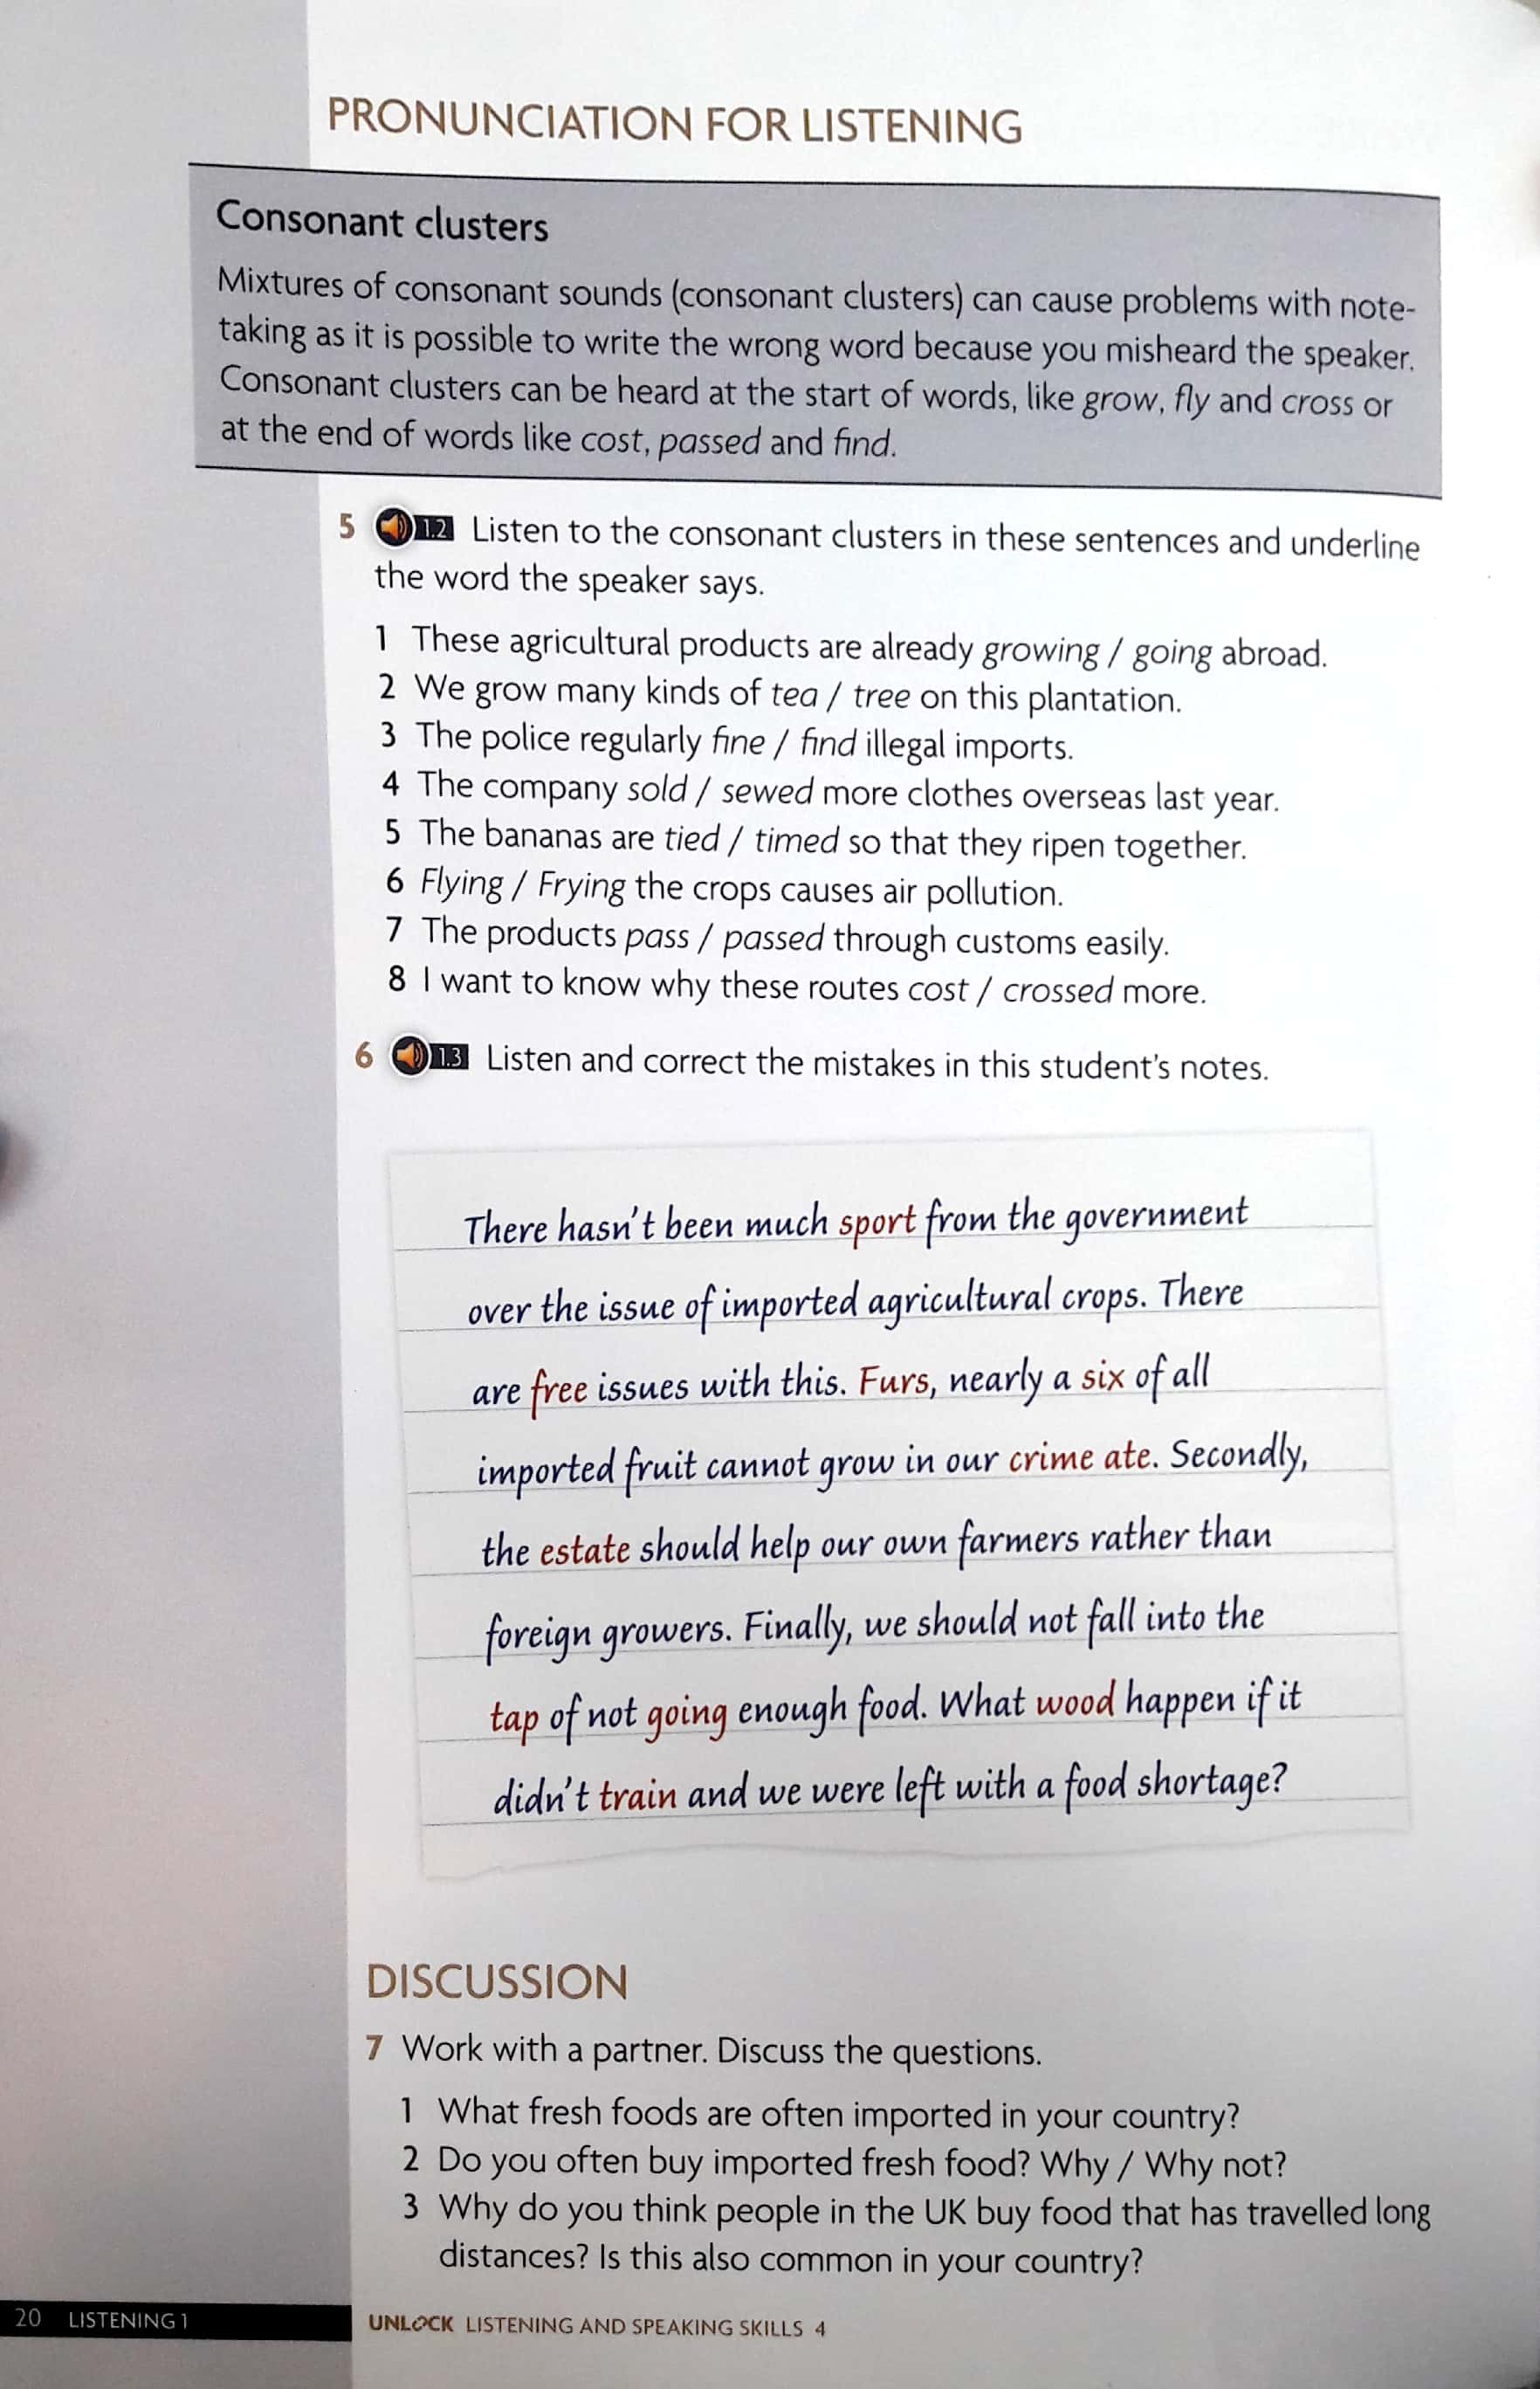 PRONUNCIATION FOR LISTENING
Consonant clusters
Mixtures of consonant sounds (consonant clusters) can cause problems with note-
taking as it is possible to write the wrong word because you misheard the speaker.
Consonant clusters can be heard at the start of words, like grow, fly and cross or
at the end of words like cost, passed and find.
5 1.2 Listen to the consonant clusters in these sentences and underline
the word the speaker says.
1 These agricultural products are already growing / going abroad.
2 We grow many kinds of tea / tree on this plantation.
3 The police regularly fine / find illegal imports.
4 The company sold / sewed more clothes overseas last year.
5 The bananas are tied / timed so that they ripen together.
6 Flying / Frying the crops causes air pollution.
7 The products pass / passed through customs easily.
8 I want to know why these routes cost / crossed more.
6 1.3 Listen and correct the mistakes in this student's notes.
There hasn't been much sport from the government
over the issue of imported agricultural crops. There
are free issues with this. Furs, nearly a six of all
imported fruit cannot grow in our crime ate. Secondly,
the estate should help our own farmers rather than
foreign growers. Finally, we should not fall into the
tap of not going enough food. What wood happen if it
didn't train and we were left with a food shortage?
DISCUSSION
7 Work with a partner. Discuss the questions.
1 What fresh foods are often imported in your country?
2 Do you often buy imported fresh food? Why / Why not?
3 Why do you think people in the UK buy food that has travelled long
distances? Is this also common in your country?
20 LISTENING 1
UNLOCK LISTENING AND SPEAKING SKILLS 4